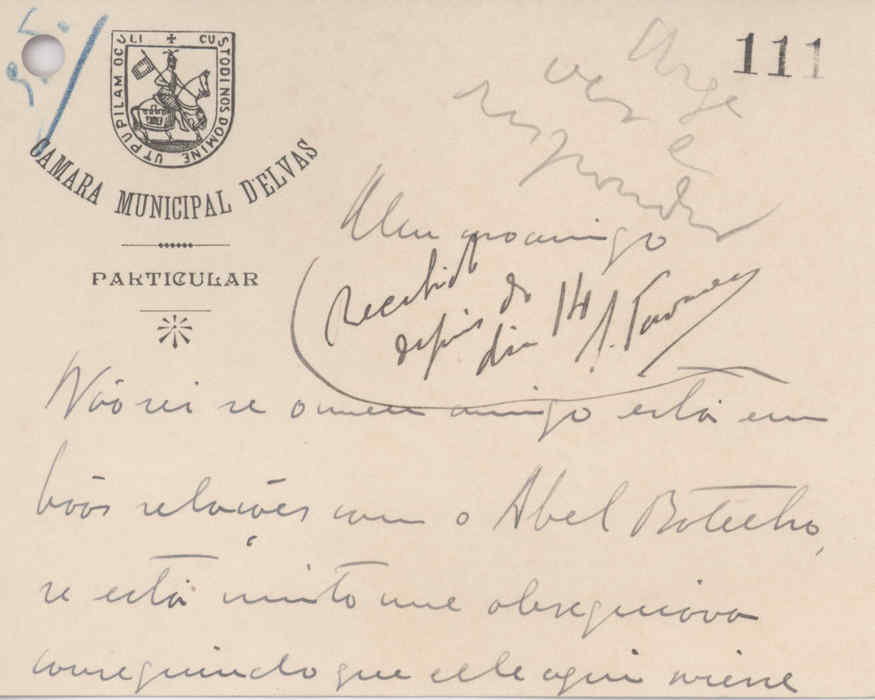 111
UT PUPILAM OCULI CUSTODI NOS DOMINE
CAMARA MUNICIPAL D'ELVAS
PARTICULAR
Urge
ver e
responder
Meu caro amigo
Recebido
depois do
dia 14
Não sei se o meu amigo está em
bôas relações com o Abel Botelho,
se está muito me obsequiava
conseguindo que elle aqui viesse